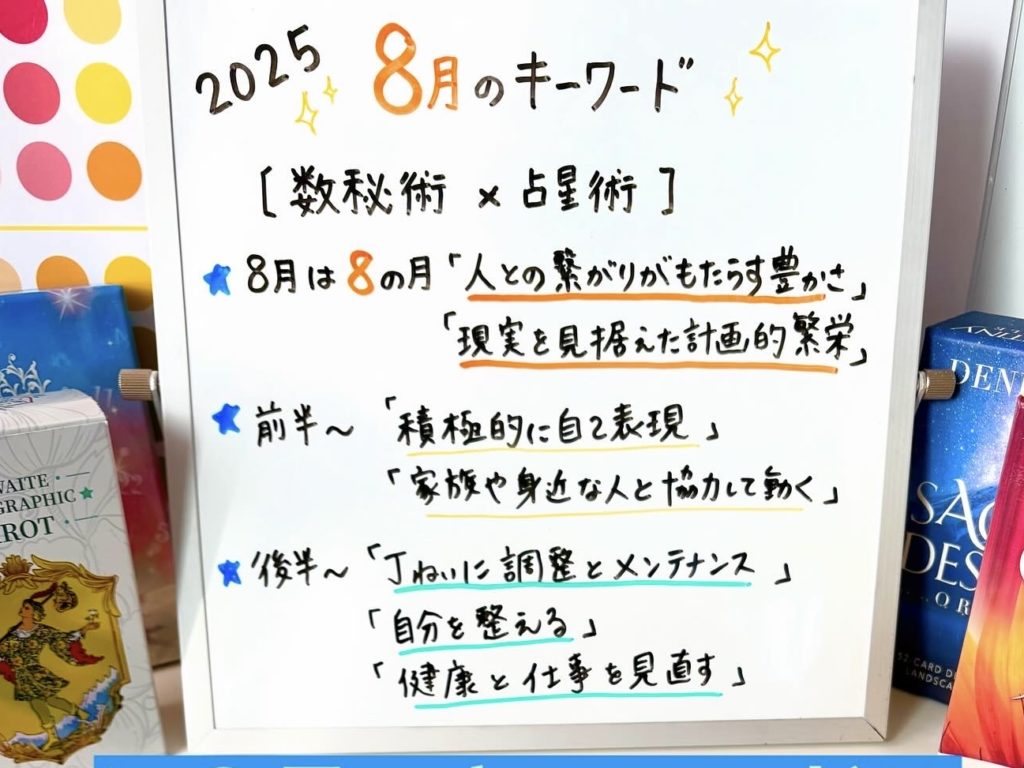 2025 8月のキーワード
[数秘術 × 占星術]
★ 8月は8の月「人との繋がりがもたらす豊かさ」
「現実を見据えた計画的繁栄」
★ 前半～「積極的に自己表現」
「家族や身近な人と協力して動く」
★ 後半～「丁ねいに調整とメンテナンス」
「自分を整える」
「健康と仕事を見直す」
WAITE
GRAPHIC
ROT
DEN
SAC
DES
OR
52 CARD DE
LANDSCA